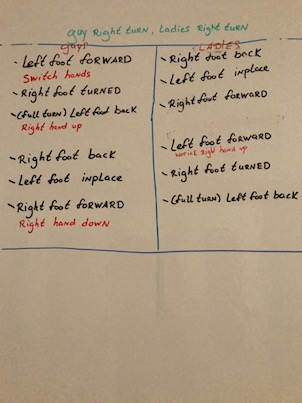 Guy Right turn, Ladies Right turn
Guys
- Left foot FORWARD
Switch hands
- Right foot TURNED
- (full turn) Left foot back
Right hand up
- Right foot back
- Left foot inplace
- Right foot FORWARD
Right hand down
LADIES
- Right foot back
- Left foot inplace
- Right foot FORWARD
- Left foot FORWARD
notice Right hand up
- Right foot TURNED
- (full turn) Left foot back